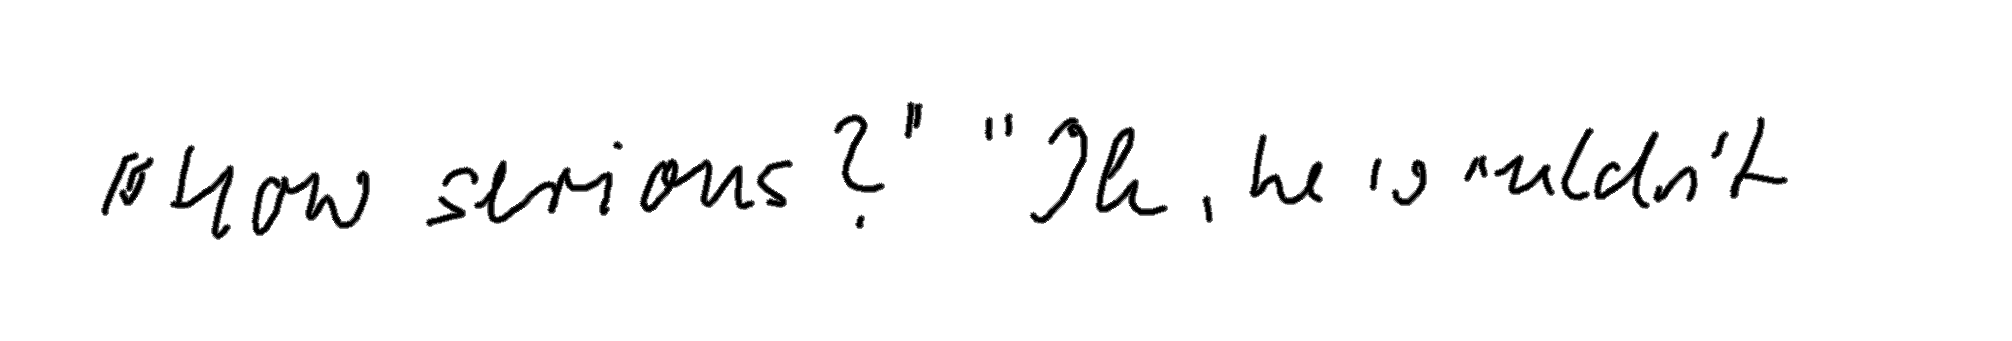 "How serious?" "Oh, he wouldn't